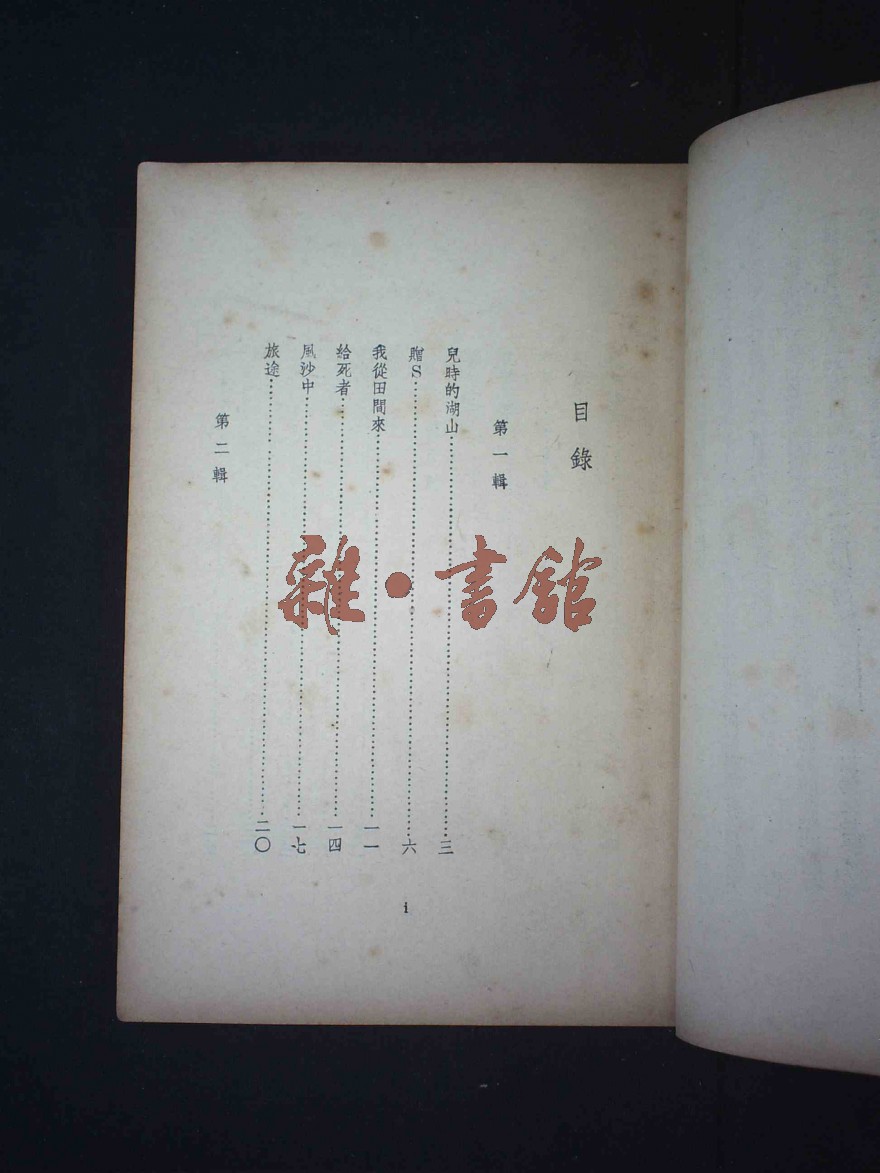 目錄
第一輯
兒時的湖山……三
贈S……六
我從田間來……一一
給死者……一四
風沙中……一七
旅途……二〇
第二輯
i
雜•書館